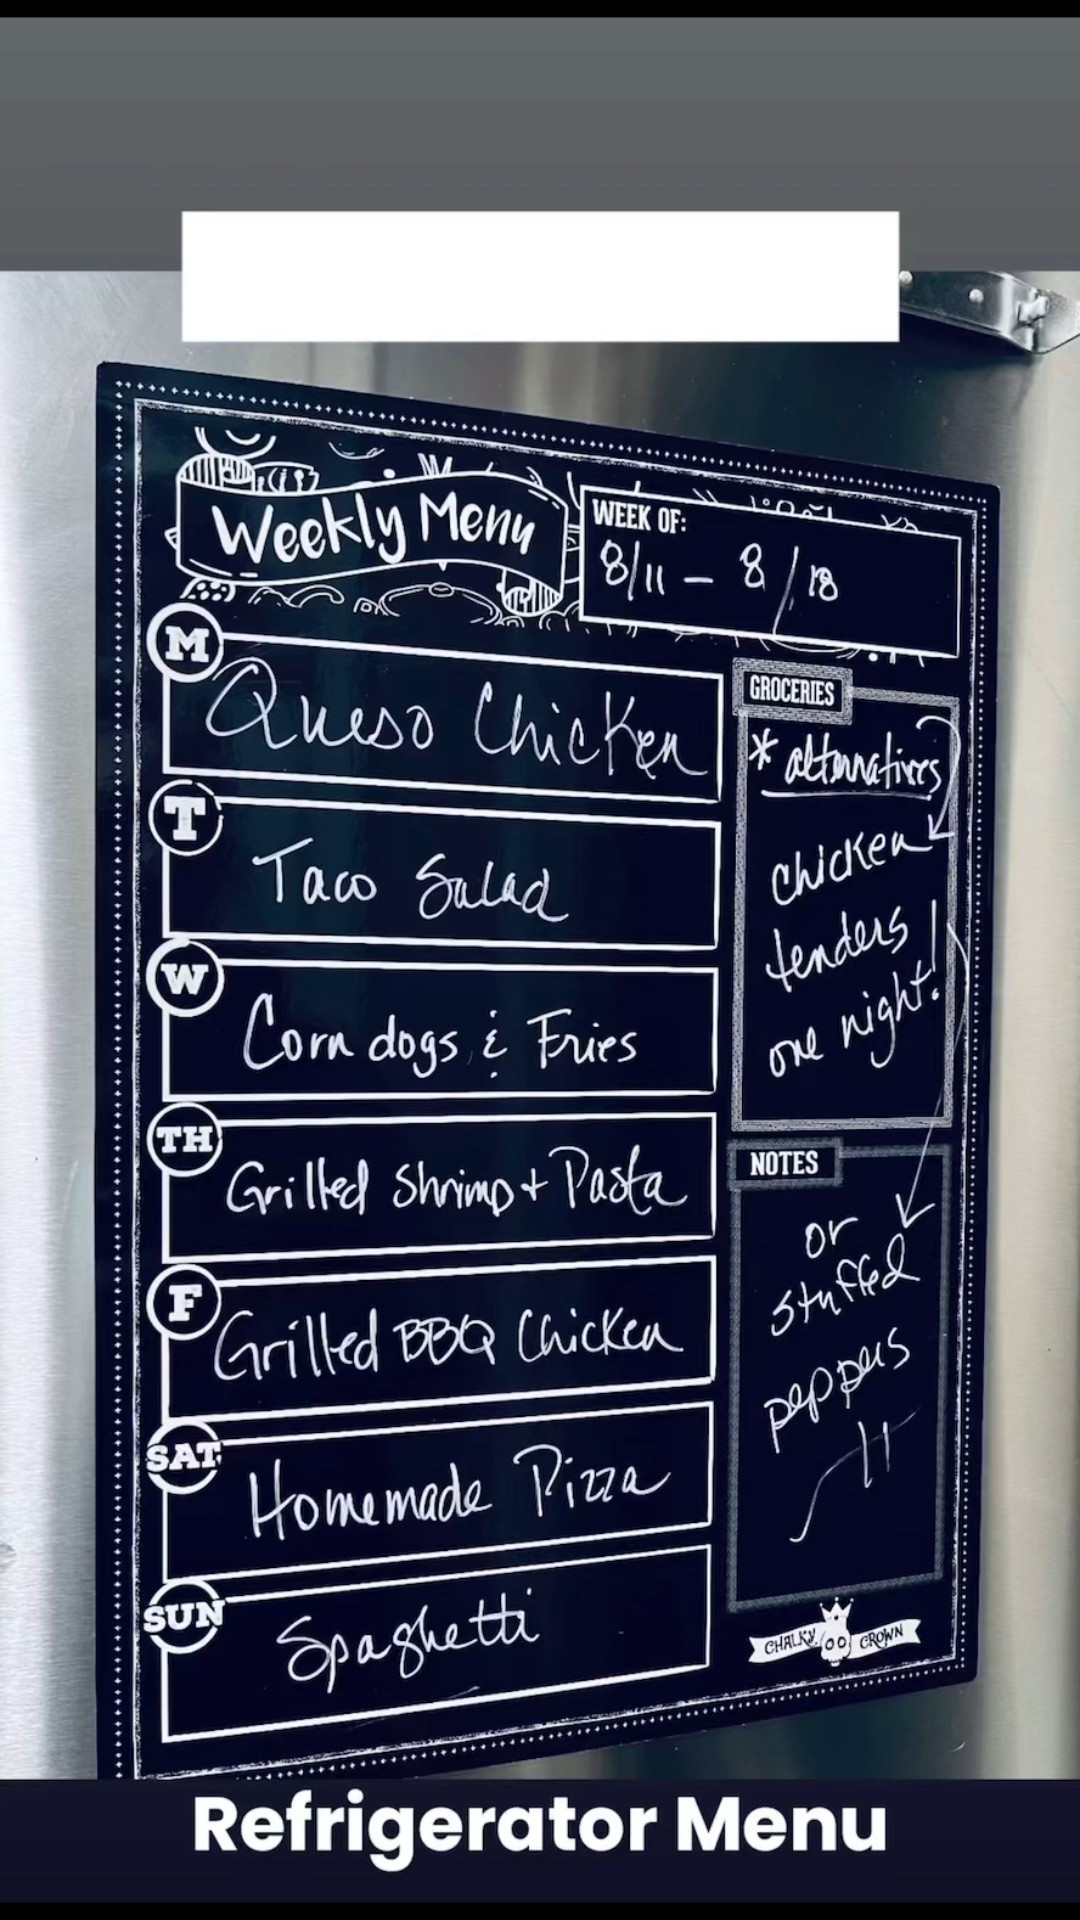 Weekly Menu
WEEK OF:
8/11 - 8/18
M
Queso Chicken
T
Taco Salad
W
Corn dogs & Fries
TH
Grilled Shrimp + Pasta
F
Grilled BBQ Chicken
SAT
Homemade Pizza
SUN
Spaghetti
GROCERIES
* alternatives
chicken
tenders
one night!
NOTES
or
stuffed
peppers
CHALKY CROWN
Refrigerator Menu